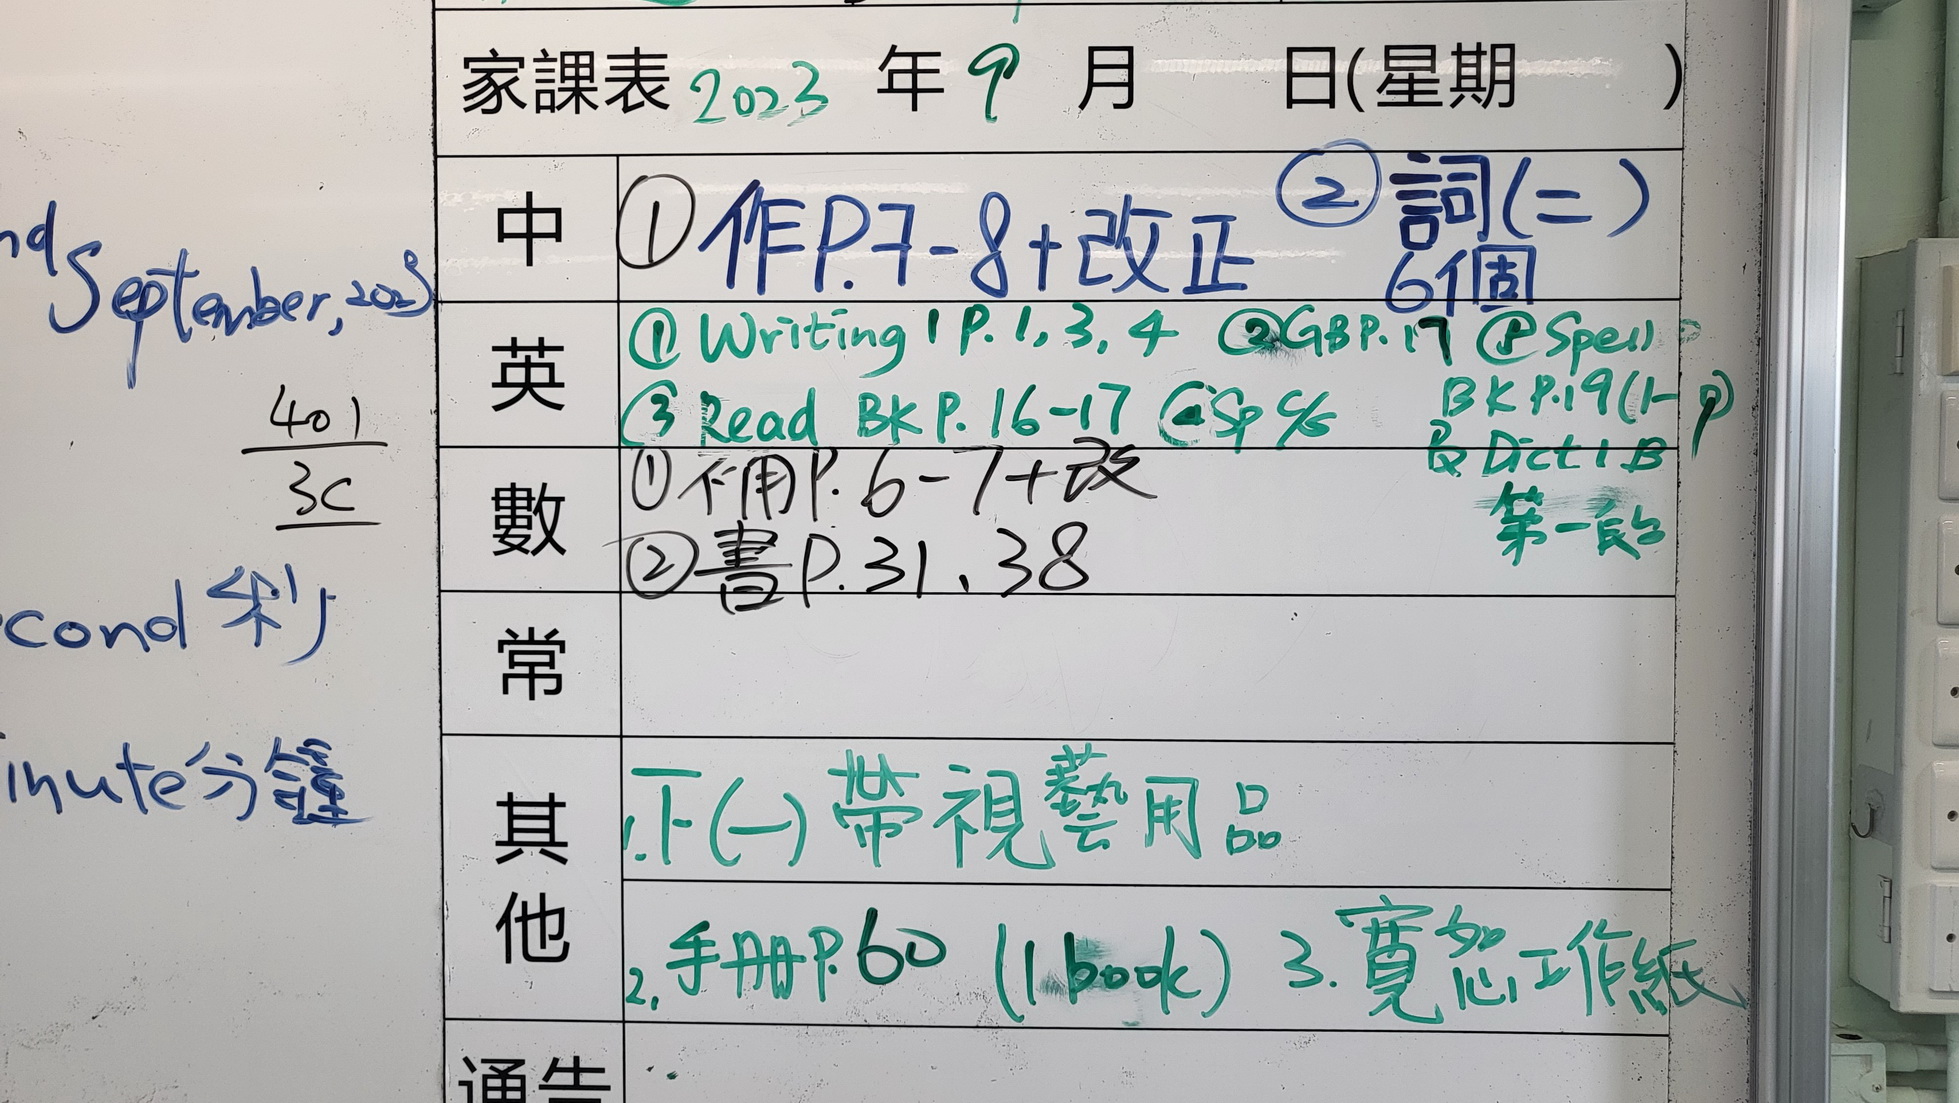 家課表 2023 年 9 月 日(星期 )
中 ① 作P.7-8+改正 ② 詞(二)
6個
英 ① Writing 1 P.1, 3, 4 ② GB P.17 Spell
③ Read BK P. 16-17 ④ Sp c/s BK P.19(1-9)
& Dict 1 B
第一段
數 ① 作P. 6-7+改
② 書P.31、38
常
其他 1.下(一)帶視藝用品
2. 手冊P.60 (1 book) 3. 寬恕工作紙
通告
nd September, 2023
401
3C
cond 秒
inute 分鐘